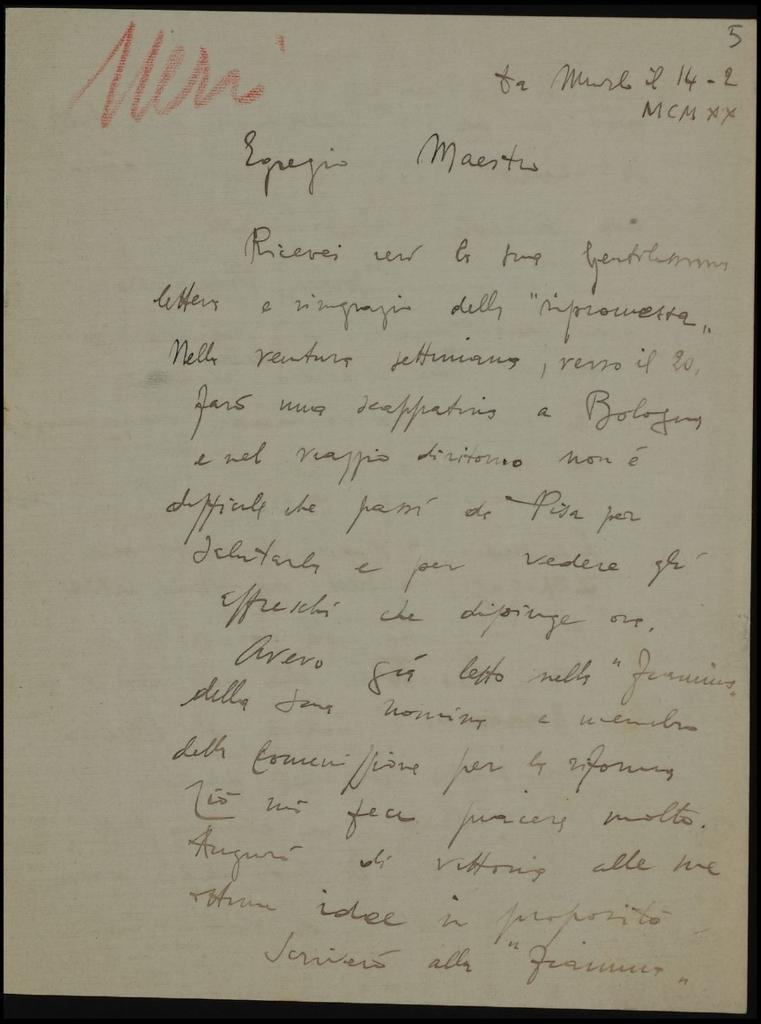 5
Neri
Da Murlo il 14-2
MCMXX
Egregio Maestro
Ricevei ieri la sua gentilissima
lettera e ringrazio della "ripromessa„
Nella ventura settimana, verso il 20,
farò una scappatina a Bologna
e nel viaggio di ritorno non é
difficile che passi da Pisa per
salutarla e per vedere gli
affreschi che dipinge ora.
Avevo già letto nella "Fiamma„
della sua nomina a membro
della Commissione per la riforma
Ciò mi fece piacere molto.
Auguri di vittoria alle sue
ottime idee in proposito
Scriverò alla "Fiamma„